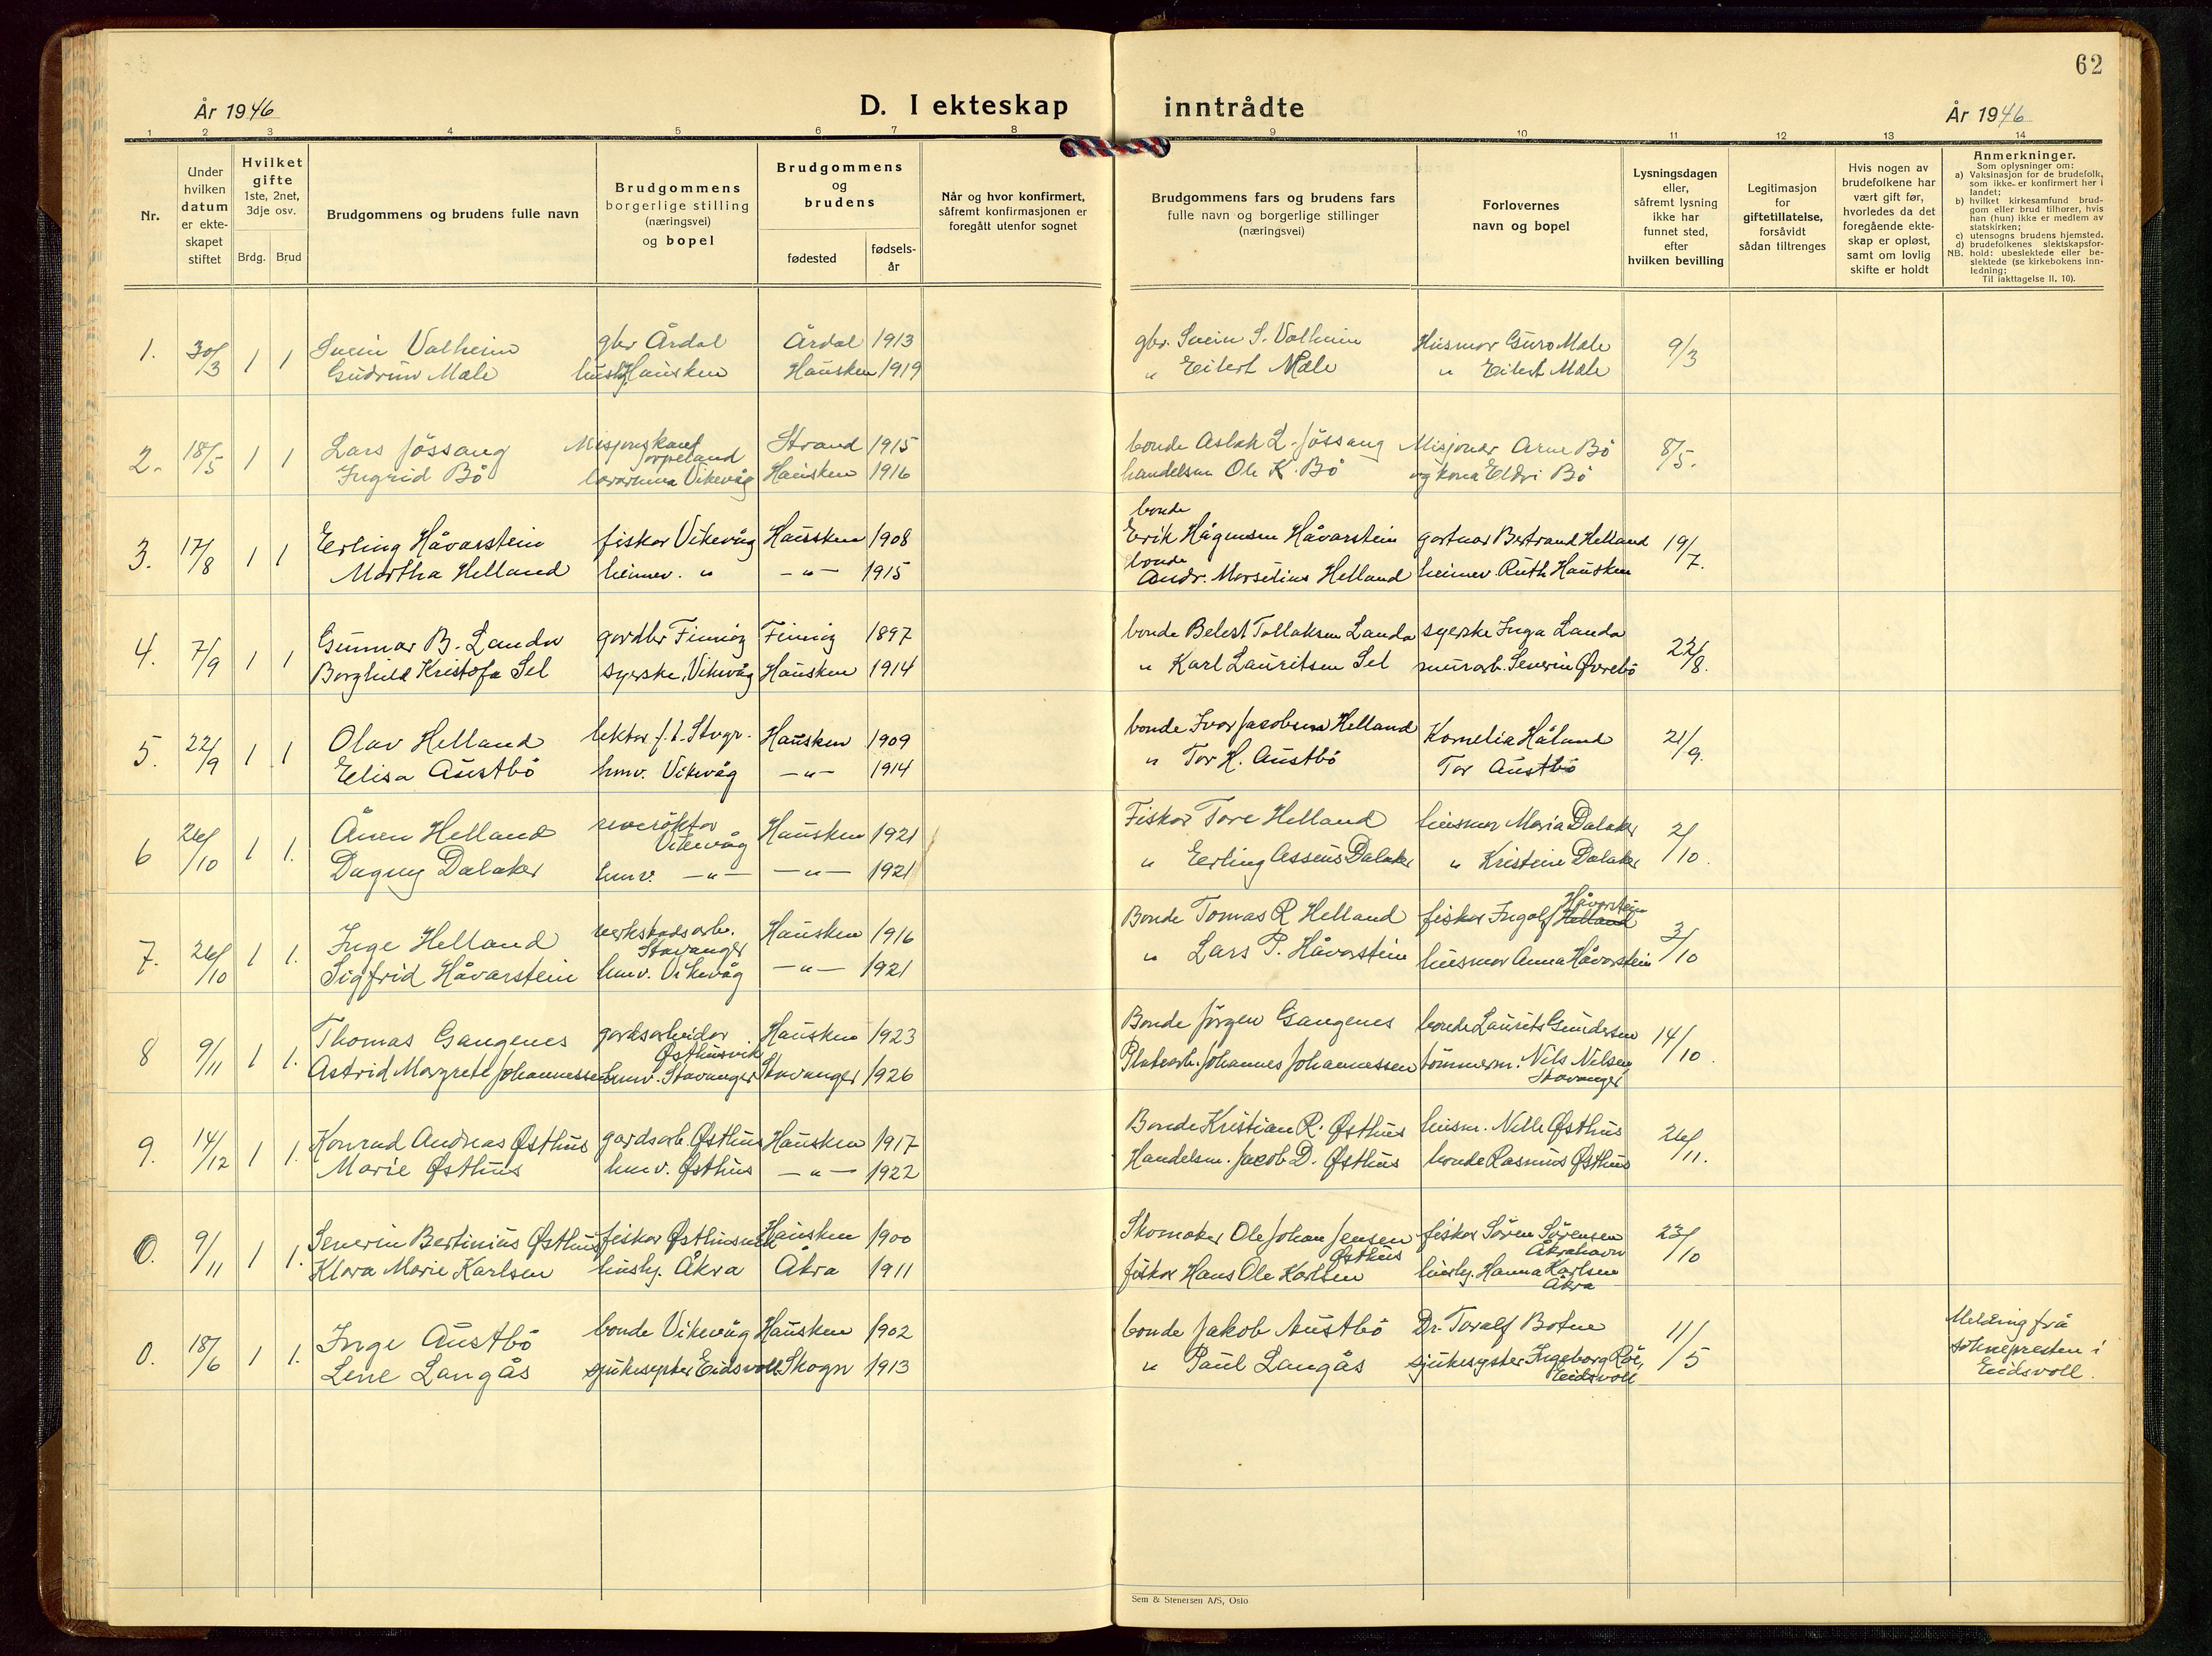 62
År 1946
D. I ekteskap
inntrådte
År 1946
1 2 3 4 5 6 7 8 9 10 11 12 13 14
Nr.
Under
hvilken
datum
er ekte-
skapet
stiftet
Hvilket
gifte
1ste, 2net,
3dje osv.
Brdg. Brud
Brudgommens og brudens fulle navn
Brudgommens
borgerlige stilling
(næringsvei)
og bopel
Brudgommens
og
brudens
fødested
fødsels-
år
Når og hvor konfirmert,
såfremt konfirmasjonen er
foregått utenfor sognet
Brudgommens fars og brudens fars
fulle navn og borgerlige stillinger
(næringsvei)
Forlovernes
navn og bopel
Lysningsdagen
eller,
såfremt lysning
ikke har
funnet sted,
efter
hvilken bevilling
Legitimasjon
for
giftetillatelse,
forsåvidt
sådan tiltrenges
Hvis nogen av
brudefolkene har
vært gift før,
hvorledes da det
foregående ekte-
skap er opløst,
samt om lovlig
skifte er holdt
Anmerkninger.
Som oplysninger om:
a) Vaksinasjon for de brudefolk,
som ikke er konfirmert her i
landet;
b) hvilket kirkesamfund brud-
gom eller brud tilhører, hvis
han (hun) ikke er medlem av
statskirken;
c) utensogns brudens hjemsted.
d) brudefolkenes slektskapsfor-
hold: ubeslektede eller be-
slektede (se kirkebokens inn-
ledning;
NB.
Til iakttagelse II, 10).
1. 30/3 1 1 Svein Valheim gbr Årdal Årdal 1913 gbr. Svein S. Valheim Husmor Guro Mæle 9/3
Gudrun Mæle hush. Hausken Hausken 1919 " Eilert Mæle " Eilert Mæle
2. 18/5 1 1 Lars Jössang Misjonskand Strand 1915 bonde Aslak L. Jössang Misjonær Arne Bö 8/5.
Ingrid Bö lærarinna Vikevåg Hausken 1916 handelsm Ole K. Bö og kona Eldri Bö
bonde
3. 17/8 1 1 Erling Håvarstein fisker Vikevåg Hausken 1908 Erik Hågensen Håvarstein gartnar Bertrand Helland 19/7.
bonde
Martha Helland heimev. " -"- 1915 Andr. Marselius Helland heimev. Ruth Hausken
4. 7/9 1 1 Gunnar B. Landa gardbr Finnöy Finnöy 1897 bonde Belest Tollaksen Landa syerske Inga Landa 22/8.
Borghild Kristofa Sel syerske, Vikevåg Hausken 1914 " Karl Lauritsen Sel murarb. Severin Øvrebö
5. 22/9 1 1 Olav Helland lektor f.t. Stvgr. Hausken 1909 bonde Ivar Jacobsen Helland Kornelia Håland 21/9.
Elisa Austbö hmv. Vikevåg -"- 1914 " Tor H. Austbö Tor Austbö
6 26/10 1 1. Ånen Helland reverökter Hausken 1921 Fisker Tore Helland husmor Maria Dalaker 2/10.
Vikevåg
Dagny Dalaker hmv. -"- -"- 1921 " Erling Assens Dalaker " Kristine Dalaker
Håvarstein
7. 26/10 1 1. Inge Helland verkstadsarb. Hausken 1916 Bonde Tomas R Helland fisker Ingolf Helland 3/10
Stavanger
Sigfrid Håvarstein hmv. Vikevåg -"- 1921 " Lars P. Håvarstein husmor Anna Håvarstein
8 9/11 1 1. Thomas Gangenes gardsarbeider Hausken 1923 Bonde Jörgen Gangenes bonde Laurits Gundersen 14/10.
Østhusvik
Astrid Margrete Johannessen hmv. Stavanger Stavanger 1926 Platearb. Johannes Johannessen tömmerm. Nils Nilsen
Stavanger
9. 14/12 1 1. Konrad Andreas Østhus gardsarb. Østhus Hausken 1917 Bonde Kristian R. Østhus husm. Nille Østhus 26/11.
Marie Østhus hmv. Østhus -"- 1922 Handelsm. Jacob D. Østhus bonde Rasmus Østhus
0. 9/11 1 1. Severin Bertinius Østhus fisker Østhusvik Hausken 1900 Skomaker Ole Johan Jensen fisker Sören Sörensen 23/10
Østhus Åkrahavn
Klara Marie Karlsen hushj. Åkra Åkra 1911 fisker Hans Ole Karlsen hushj. Hanna Karlsen
Åkra
0. 18/6 1 1. Inge Austbö bonde Vikevåg Hausken 1902 bonde Jakob Austbö Dr. Toralf Botne 11/5 Melding frå
sokneprestren i
Lene Langås sjukesyster Eidsvoll Skogn 1913 " Paul Langås sjukesyster Ingeborg Röe, Eidsvoll.
Eidsvoll
Sem & Stenersen A/S, Oslo